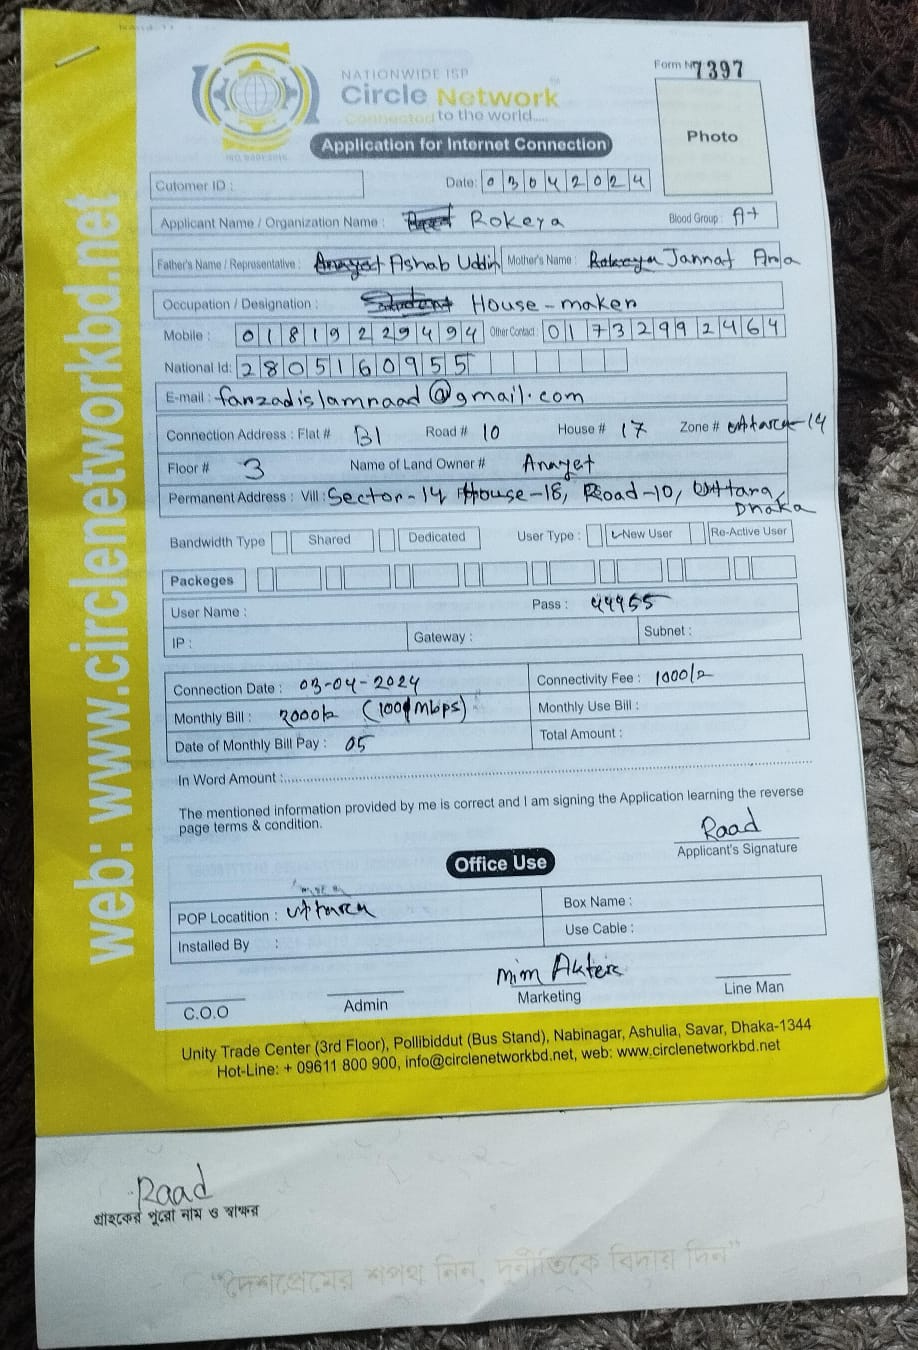 NATIONWIDE ISP
Circle Network
Connected to the world.....
Form No 7397
Photo
Application for Internet Connection
Cutomer ID :
Date: 03042024
Applicant Name / Organization Name : Rokeya Blood Group : A+
Father's Name / Representative : Anayet Ashab Uddin Mother's Name : Rokeya Jannat Ara
Occupation / Designation : Student House-maker
Mobile : 01819229494 Other Contact : 01732992464
National Id: 2805160955
E-mail : farzadislamraad@gmail.com
Connection Address : Flat # B1 Road # 10 House # 17 Zone # Uttara-14
Floor # 3 Name of Land Owner # Anayet
Permanent Address : Vill : Sector-14 House-18, Road-10, Uttara,
Dhaka
Bandwidth Type Shared Dedicated User Type : New User Re-Active User
Packeges
User Name : Pass : 44955
IP : Gateway : Subnet :
Connection Date : 03-04-2024 Connectivity Fee : 1000/=
Monthly Bill : 2000/= (100Mbps) Monthly Use Bill :
Date of Monthly Bill Pay : 05 Total Amount :
In Word Amount :
The mentioned information provided by me is correct and I am signing the Application learning the reverse
page terms & condition.
Raad
Applicant's Signature
Office Use
POP Locatition : Uttara Box Name :
Installed By : Use Cable :
Mim Akter
C.O.O Admin Marketing Line Man
Unity Trade Center (3rd Floor), Pollibiddut (Bus Stand), Nabinagar, Ashulia, Savar, Dhaka-1344
Hot-Line: + 09611 800 900, info@circlenetworkbd.net, web: www.circlenetworkbd.net
web: www.circlenetworkbd.net
Raad
গ্রাহকের পুরো নাম ও স্বাক্ষর
“দেশপ্রেমের শপথ নিন, দুর্নীতিকে বিদায় দিন”